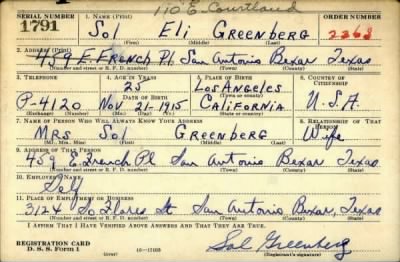 110 E. Courtland
SERIAL NUMBER 1. NAME (Print) ORDER NUMBER
1791 Sol Eli GREENBERG 2263
(First) (Middle) (Last)
2. ADDRESS (Print)
459 E. FRENCH Pl San Antonio Bexar Texas
(Number and street or R. F. D. number) (Town) (County) (State)
3. TELEPHONE 4. AGE IN YEARS 5. PLACE OF BIRTH 6. COUNTRY OF CITIZENSHIP
25 LosAngeles
DATE OF BIRTH (Town or county)
P-4120 Nov 21-1915 CALIFORNIA U.S.A.
(Exchange) (Number) (Mo.) (Day) (Yr.) (State or country)
7. NAME OF PERSON WHO WILL ALWAYS KNOW YOUR ADDRESS 8. RELATIONSHIP OF THAT PERSON
MRS Sol GREENBERG Wife
(Mr., Mrs., Miss) (First) (Middle) (Last)
9. ADDRESS OF THAT PERSON
459 E. French Pl San Antonio Bexar Texas
(Number and street or R. F. D. number) (Town) (County) (State)
10. EMPLOYER'S NAME
Self
11. PLACE OF EMPLOYMENT OR BUSINESS
3124 So Flores St San Antonio Bexar, Texas
(Number and street or R. F. D. number) (Town) (County) (State)
I AFFIRM THAT I HAVE VERIFIED ABOVE ANSWERS AND THAT THEY ARE TRUE.
Sol Greenberg
REGISTRATION CARD
D. S. S. Form 1 (over) (Registrant's signature)